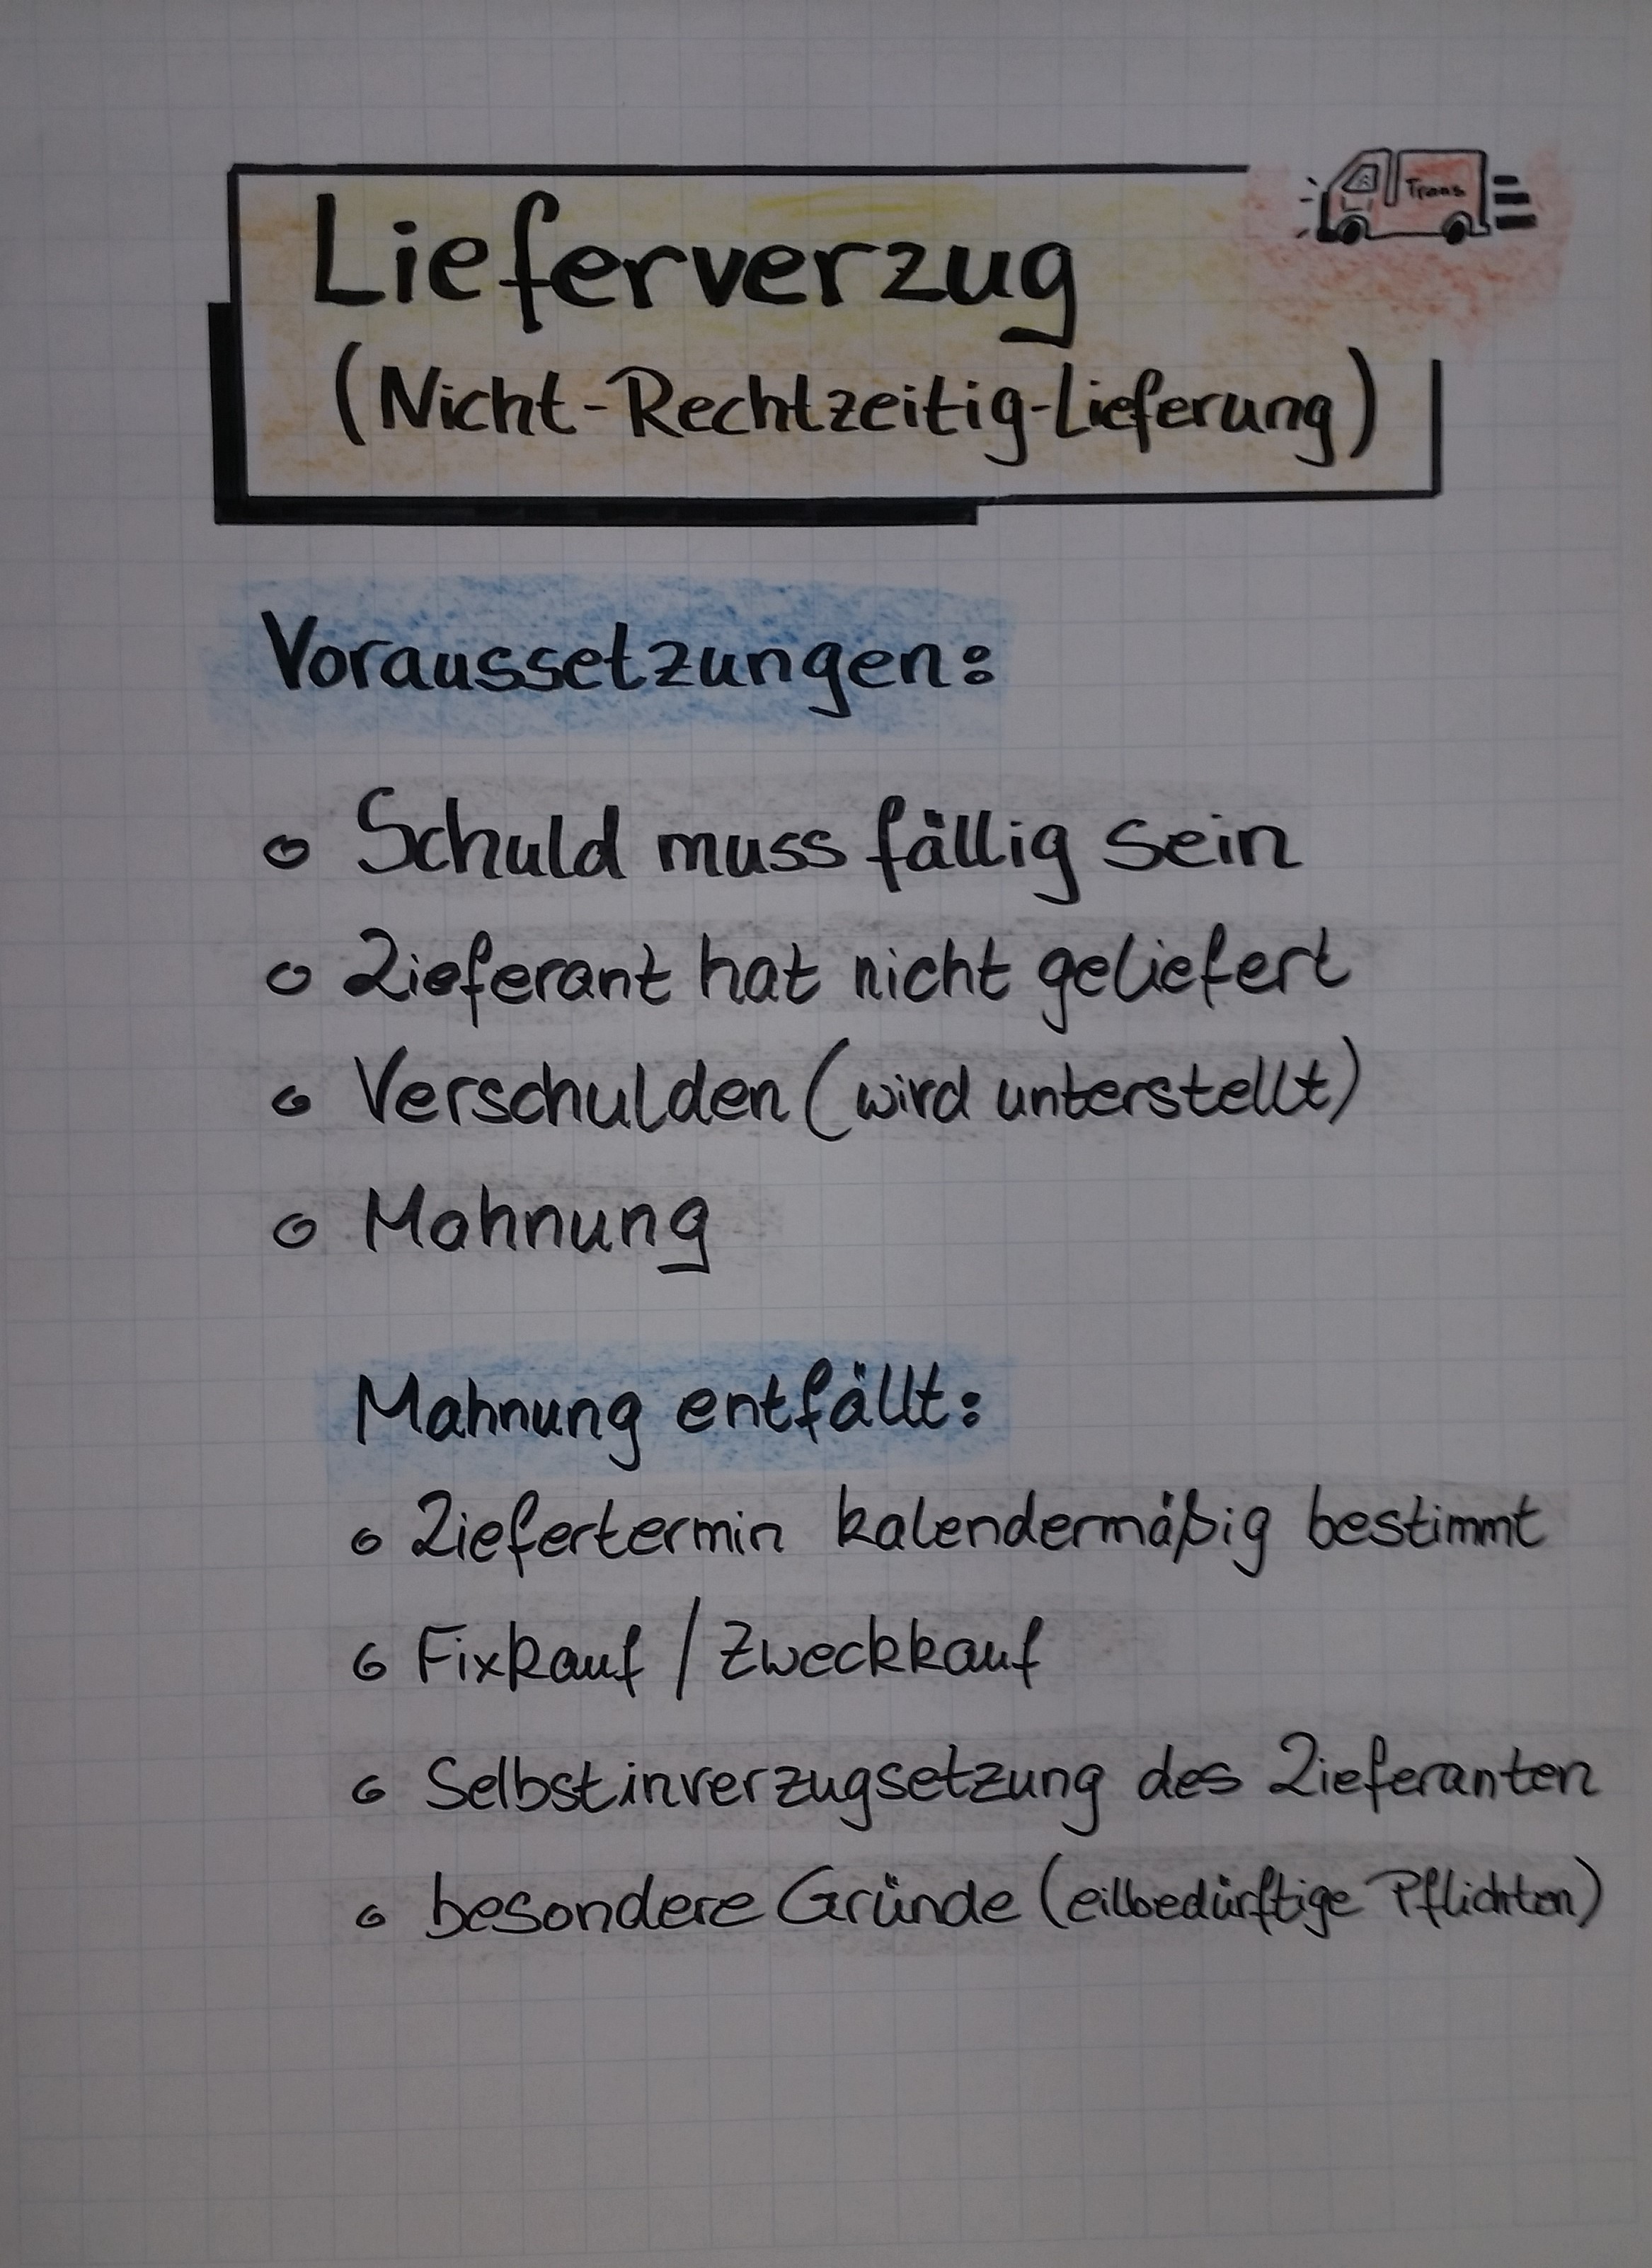 Trans
Lieferverzug
(Nicht-Rechtzeitig-Lieferung)
Voraussetzungen:
Schuld muss fällig sein
Lieferant hat nicht geliefert
Verschulden (wird unterstellt)
Mahnung
Mahnung entfällt:
Liefertermin kalendermäßig bestimmt
Fixkauf / Zweckkauf
Selbstinverzugsetzung des Lieferanten
besondere Gründe (eilbedürftige Pflichten)